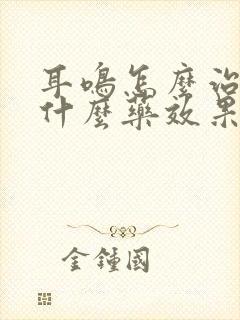 耳鳴怎麼治
什麼藥效果
金鍾國